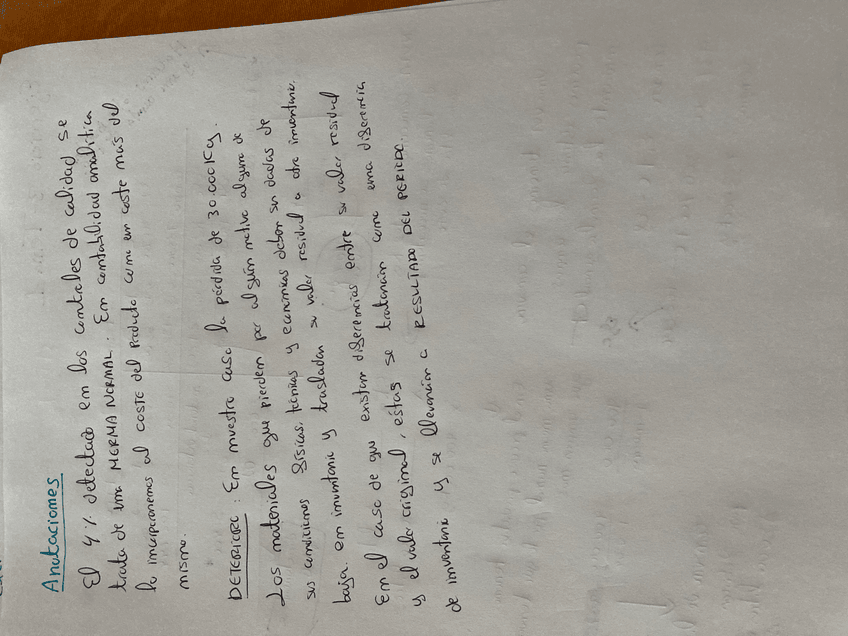 Anotaciones
El 4% detectado en los controles de calidad se
trata de una MERMA NORMAL. En contabilidad analítica
la incorporaremos al COSTE del Producto como un coste más del
mismo.
DETERIORO: En nuestro caso la pérdida de 30.000Kg.
Los materiales que pierden por algún motivo alguna de
sus condiciones físicas, técnicas y económicas deben ser dadas de
baja en inventario y trasladan su valor residual a otro inventario.
En el caso de que existan diferencias entre su valor residual
y el valor original, éstas se tratarán como una diferencia
de inventario y se llevarán a RESULTADO DEL PERIODO.